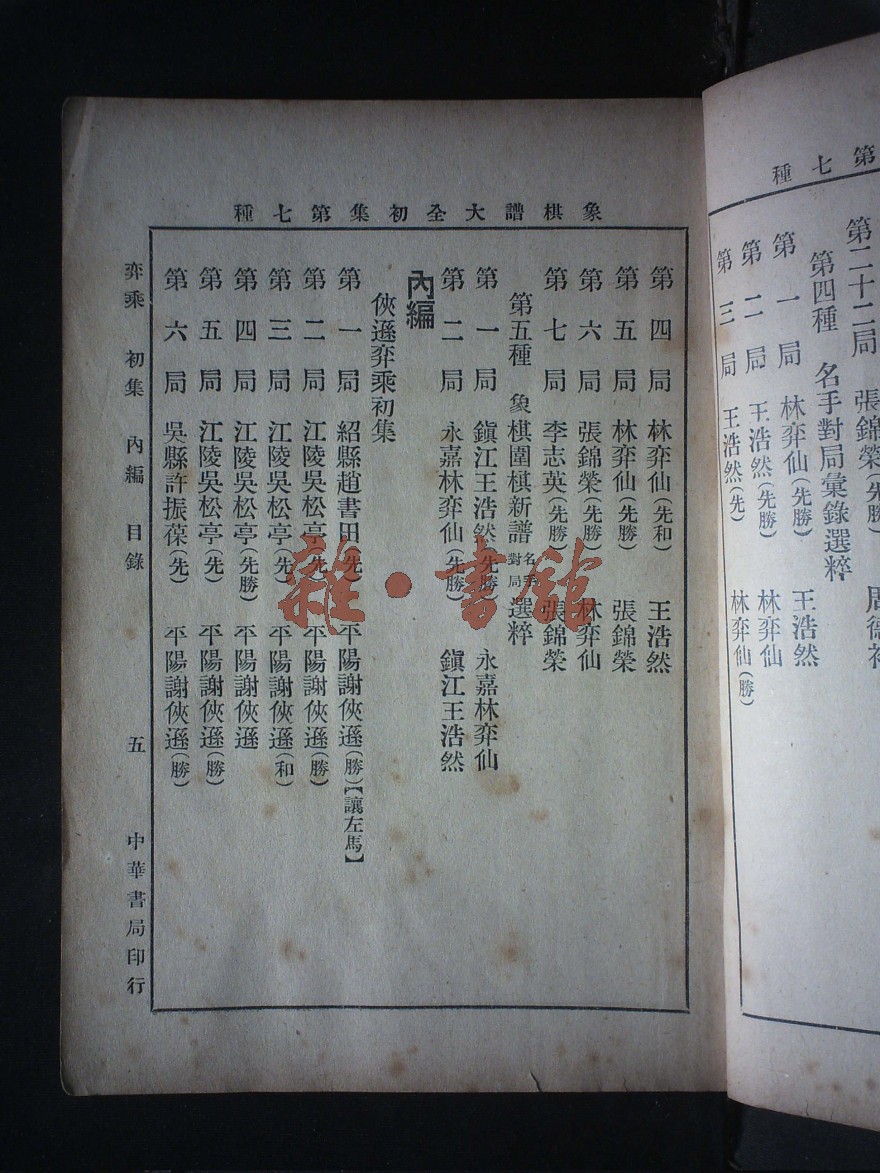 第七種
第二十二局 張錦榮(先勝)
第四種 名手對局彙錄選粹
第一局 林弈仙(先勝) 王浩然
第二局 王浩然(先勝) 林弈仙
第三局 王浩然(先) 林弈仙(勝)
象棋譜大全初集第七種
第四局 林弈仙(先和) 王浩然
第五局 林弈仙(先勝) 張錦榮
第六局 張錦榮(先勝) 林弈仙
第七局 李志英(先勝) 張錦榮
第五種 象棋圍棋新譜名手對局選粹
第一局 鎭江王浩然(先勝) 永嘉林弈仙
第二局 永嘉林弈仙(先勝) 鎭江王浩然
內編
俠遜弈乘初集
第一局 紹縣趙書田(先) 平陽謝俠遜(勝)【讓左馬】
第二局 江陵吳松亭(先) 平陽謝俠遜(勝)
第三局 江陵吳松亭(先) 平陽謝俠遜(和)
第四局 江陵吳松亭(先勝) 平陽謝俠遜
第五局 江陵吳松亭(先) 平陽謝俠遜(勝)
第六局 吳縣許振葆(先) 平陽謝俠遜(勝)
弈乘 初集 內編 目錄 五 中華書局印行
雜·書館